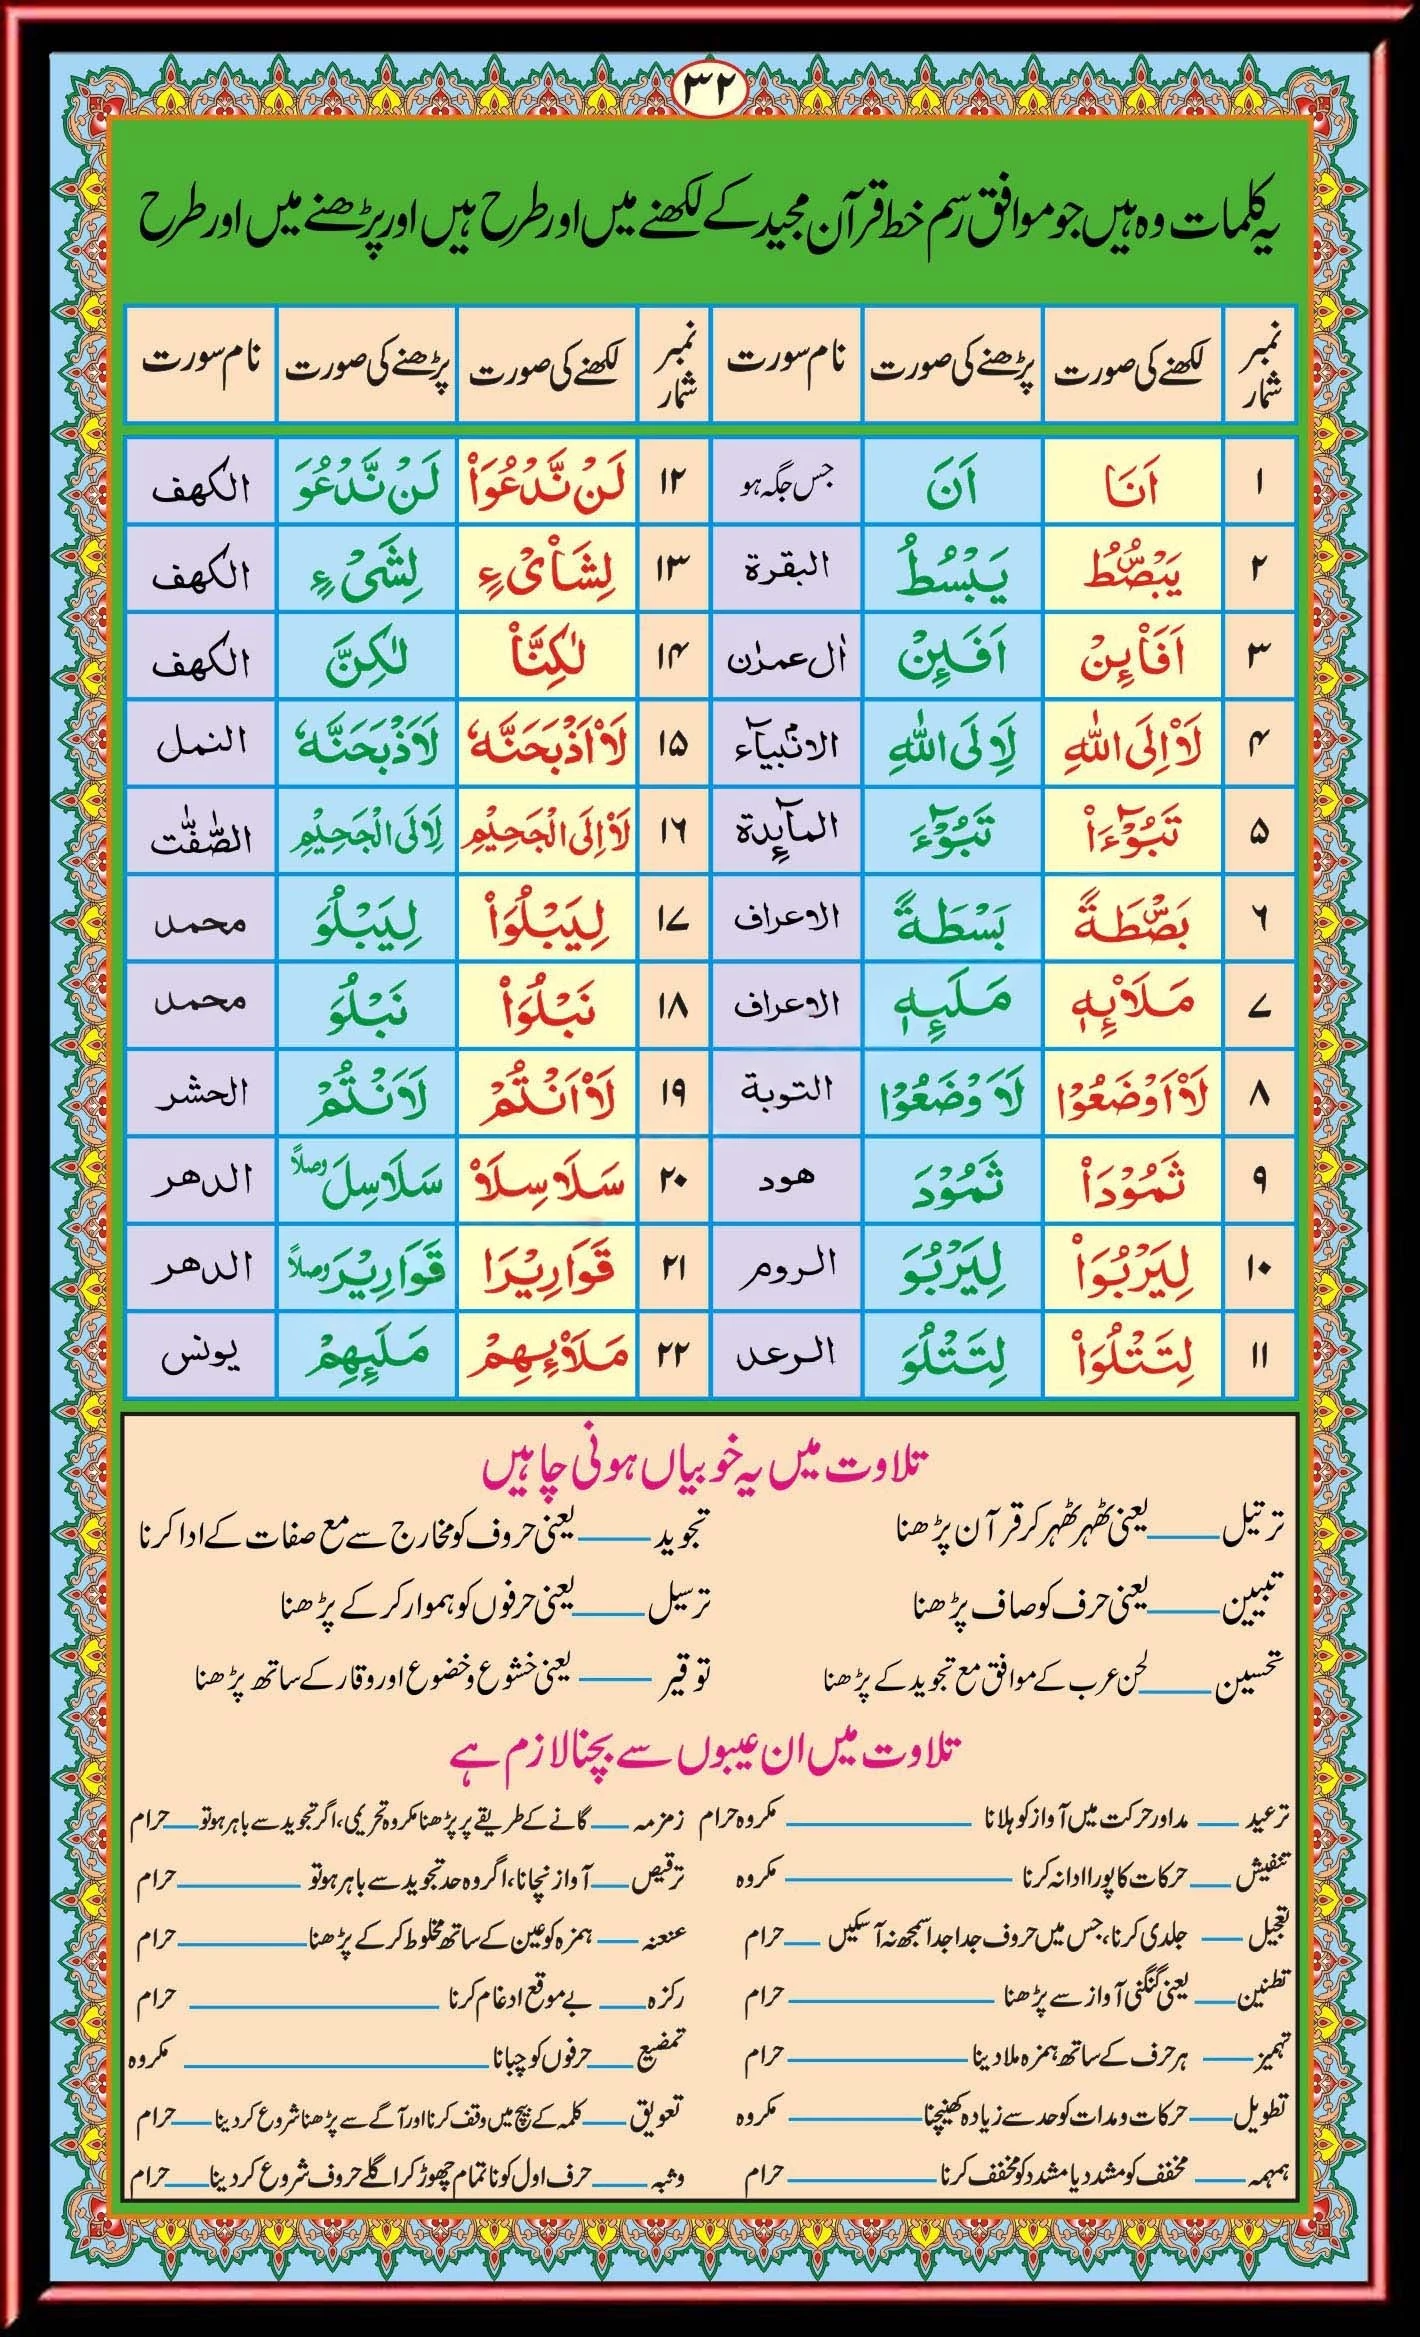 ۳۲
یہ کلمات وہ ہیں جو موافق رسم خط قرآن مجید کے لکھنے میں اور طرح ہیں اور پڑھنے میں اور طرح
نمبر شمار لکھنے کی صورت پڑھنے کی صورت نام سورت نمبر شمار لکھنے کی صورت پڑھنے کی صورت نام سورت
۱ اَنَا اَنَ جس جگہ ہو ۱۲ لَنْ نَّدْعُوَاْ لَنْ نَّدْعُوَ الکھف
۲ یَبْصُۜطُ یَبْسُطُ البقرة ۱۳ لِشَاْیْءٍ لِشَیْءٍ الکھف
۳ اَفَاْئِنْ اَفَئِنْ اٰل عمرٰن ۱۴ لٰکِنَّاْ لٰکِنَّ الکھف
۴ لَاْ اِلَی اللّٰهِ لَاِلَی اللّٰهِ الانۢبیآء ۱۵ لَاْاَذْبَحَنَّهٗ لَاَذْبَحَنَّهٗ النمل
۵ تَبُوْٓءَاْ تَبُوْٓءَ المآئدة ۱۶ لَاْاِلَی الْجَحِیْمِ لَاِلَی الْجَحِیْمِ الصّٰٓفّٰت
۶ بَصْۜطَةً بَسْطَةً الاعراف ۱۷ لِیَبْلُوَاْ لِیَبْلُوَ محمد
۷ مَلَاْئِهٖ مَلَئِهٖ الاعراف ۱۸ نَبْلُوَاْ نَبْلُوَ محمد
۸ لَاْاَوْضَعُوْا لَاَوْضَعُوْا التوبة ۱۹ لَاْاَنْتُمْ لَاَنْتُمْ الحشر
۹ ثَمُوْدَاْ ثَمُوْدَ ھود ۲۰ سَلَاسِلَاْ سَلَاسِلَ وصلاً الدھر
۱۰ لِیَرْبُوَاْ لِیَرْبُوَ الروم ۲۱ قَوَارِیْرَا قَوَارِیْرَ وصلاً الدھر
۱۱ لِتَتْلُوَاْ لِتَتْلُوَ الرعد ۲۲ مَلَاْئِهِمْ مَلَئِهِمْ یونس
تلاوت میں یہ خوبیاں ہونی چاہیں
ترتیل ــــــ یعنی ٹھہر ٹھہر کر قرآن پڑھنا تجوید ــــــ یعنی حروف کو مخارج سے مع صفات کے ادا کرنا
تبیین ــــــ یعنی حرف کو صاف پڑھنا ترسیل ــــــ یعنی حرفوں کو ہموار کر کے پڑھنا
تحسین ــــــ لحن عرب کے موافق مع تجوید کے پڑھنا توقیر ــــــ یعنی خشوع و خضوع اور وقار کے ساتھ پڑھنا
تلاوت میں ان عیبوں سے بچنا لازم ہے
ترعید ــــــ مد اور حرکت میں آواز کو ہلانا ــــــ مکروہ حرام زمزمہ ــــــ گانے کے طریقے پر پڑھنا مکروہ تحریمی، اگر تجوید سے باہر ہو تو ــــــ حرام
تنفیش ــــــ حرکات کا پورا ادا نہ کرنا ــــــ مکروہ ترقیص ــــــ آواز نچانا، اگر وہ حد تجوید سے باہر ہو تو ــــــ حرام
تعجیل ــــــ جلدی کرنا، جس میں حروف جدا جدا سمجھ نہ آ سکیں ــــــ حرام عنعنہ ــــــ ہمزہ کو عین کے ساتھ مخلوط کر کے پڑھنا ــــــ حرام
تطنین ــــــ یعنی گنگنی آواز سے پڑھنا ــــــ حرام رکزہ ــــــ بے موقع ادغام کرنا ــــــ حرام
تہمیز ــــــ ہر حرف کے ساتھ ہمزہ ملا دینا ــــــ حرام تمضیع ــــــ حرفوں کو چبانا ــــــ مکروہ
تطویل ــــــ حرکات و مدات کو حد سے زیادہ کھینچنا ــــــ مکروہ تعویق ــــــ کلمہ کے بیچ میں وقف کرنا اور آگے سے پڑھنا شروع کر دینا ــــــ حرام
ہمہمہ ــــــ مخفف کو مشدد یا مشدد کو مخفف کرنا ــــــ حرام وثبہ ــــــ حرف اول کو نا تمام چھوڑ کر اگلے حروف شروع کر دینا ــــــ حرام